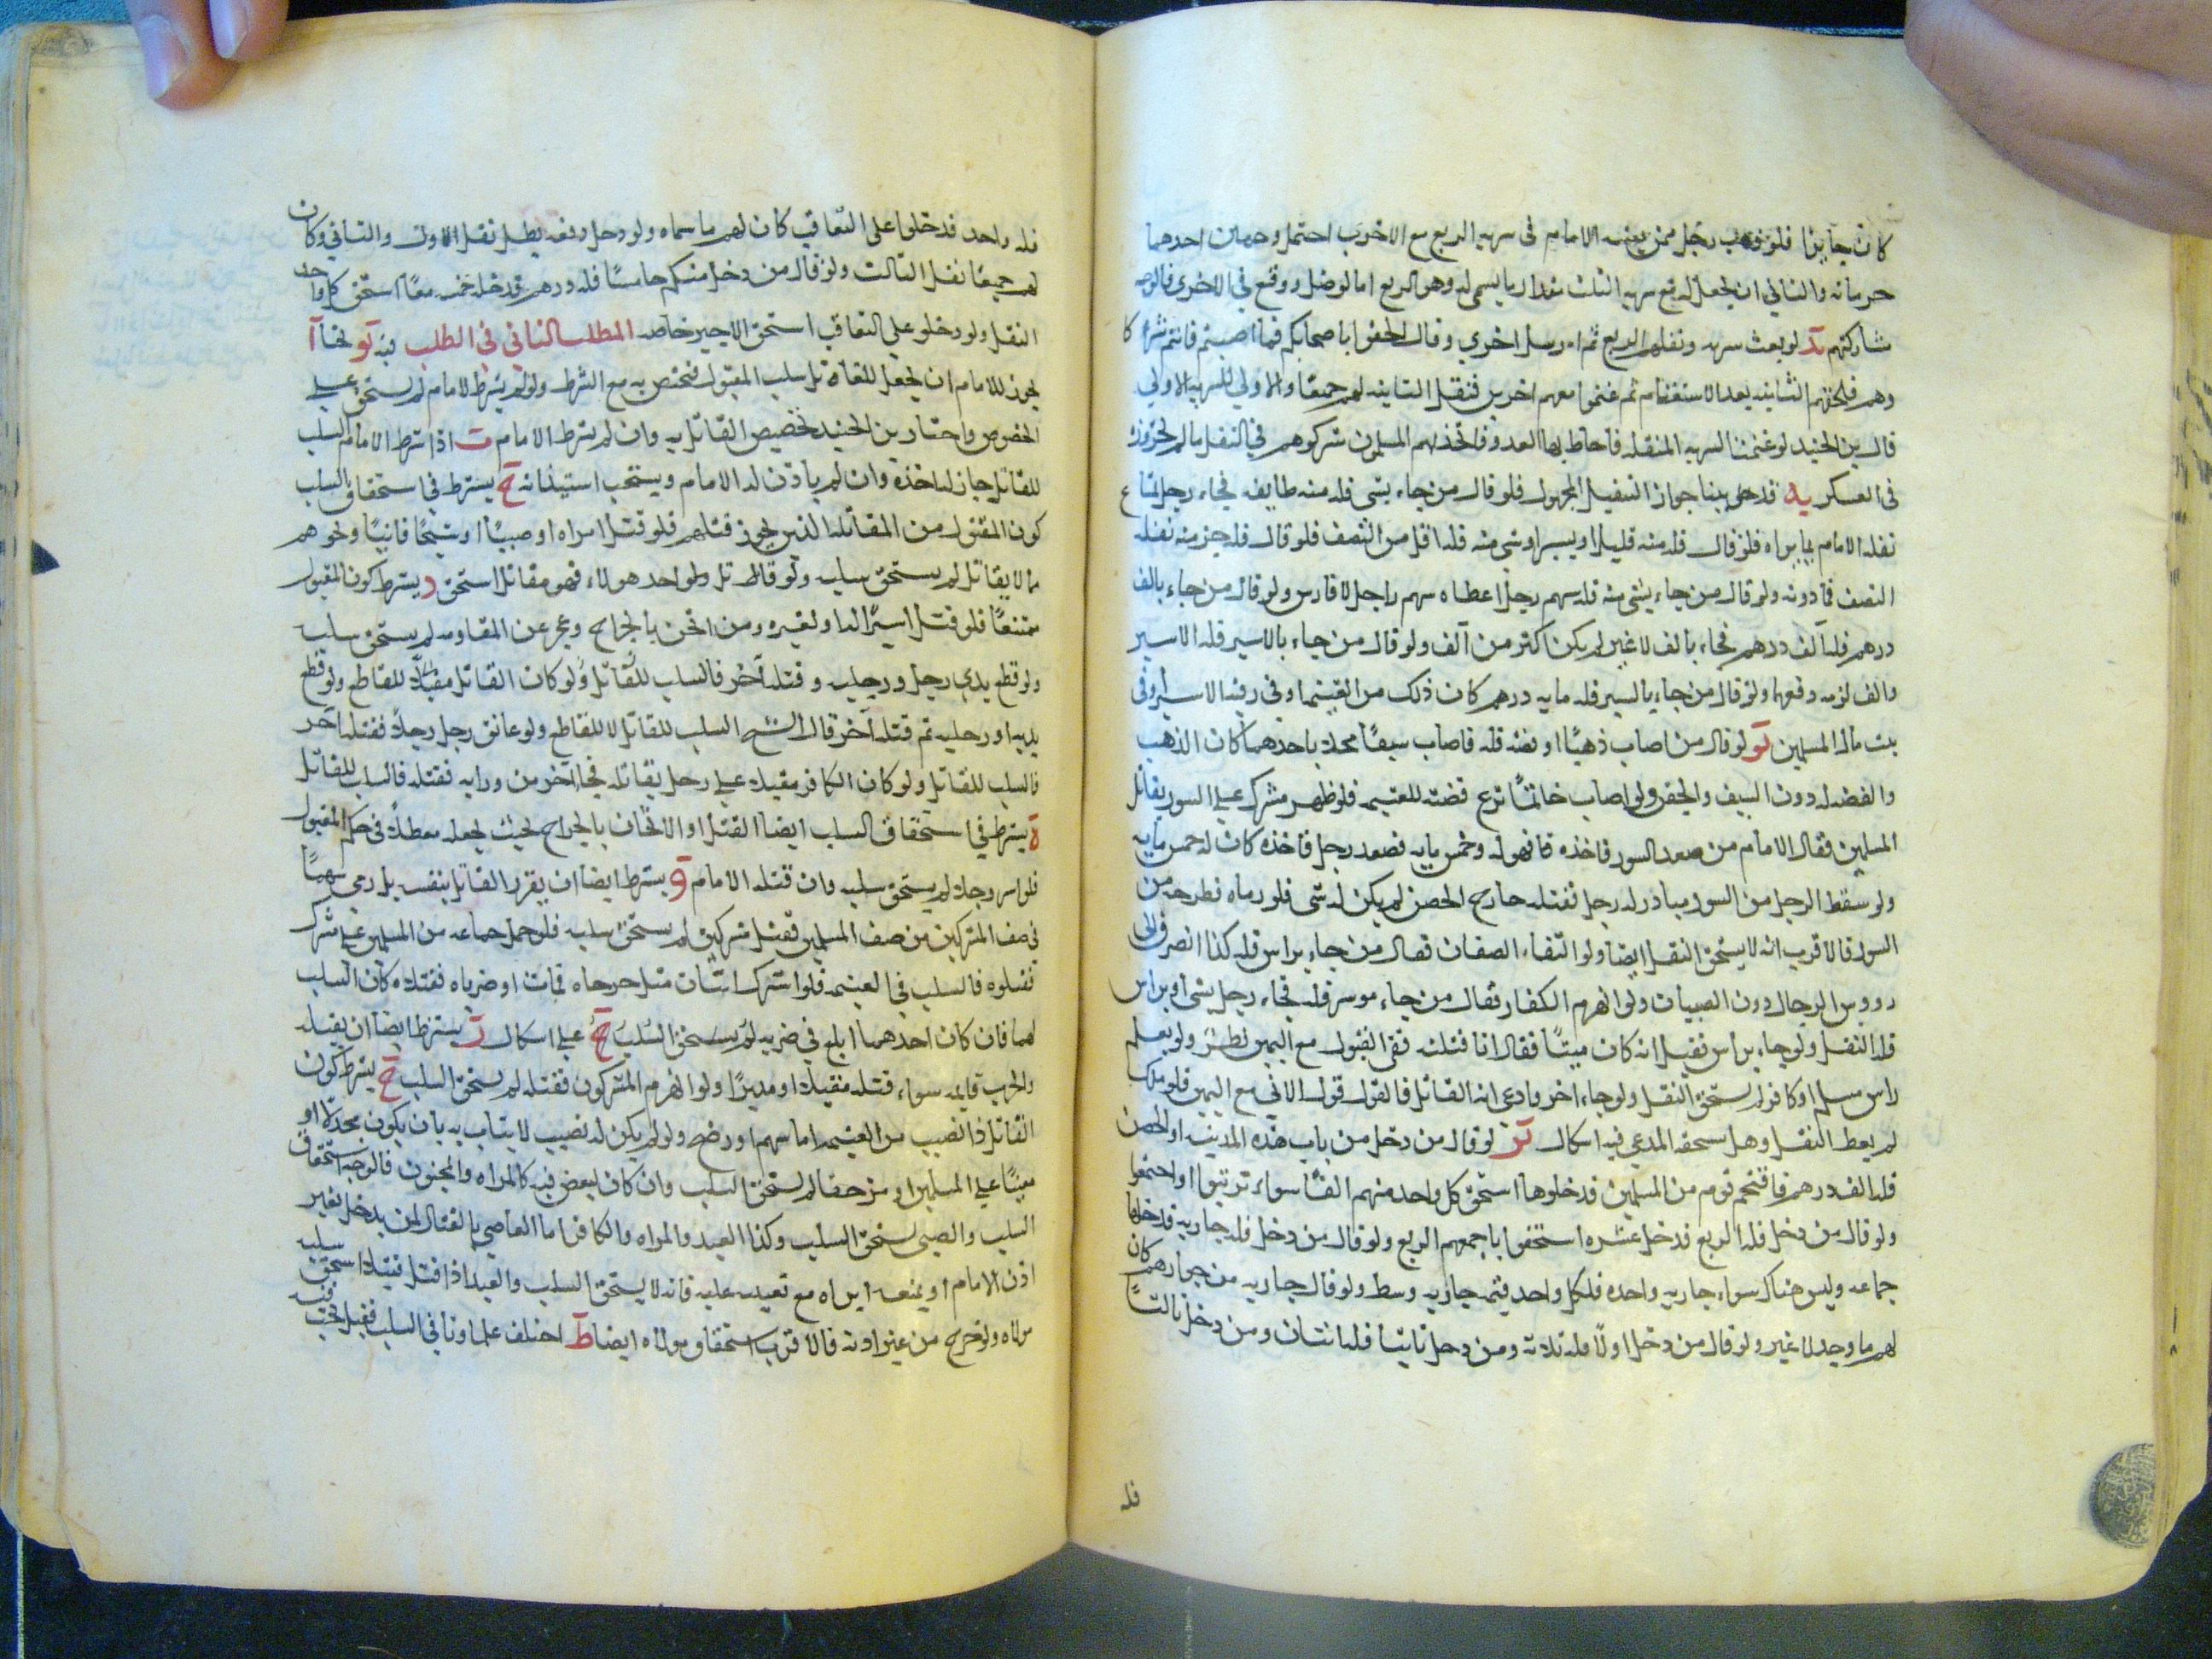 كان جايزا فلو ذهب رجل ممن بعثه الامام فى سريه الربع مع الاخرى احتمل وجهان احدهما
حرمانه والثاني ان يجعل له مع سريه الثلث مقدار ما يسمى له وهو الربع اما لو ضل ووقع في الاخرى فالوجه
مشاركتهم يد لو بعث سريه ونفلهم الربع ثم ارسل اخرى وقال الحقوا باصحابكم فما اصبتم فانتم شركا
وهم فلحقتهم الثانيه بعد الاستغنام ثم غنموا معهم اخرين فنفل الثانيه لهم جميعا والاولي للسريه الاولي
قال بن الجنيد لو غنمت السريه المنفله فاحاط بها العدو فانجدهم المسلمون شركوهم في النفل ما لم يحرزوه
فى العسكر يه قد بينا جواز التنفيل المجهول فلو قال من جاء بشى فله منه طايفه فجاء رجل بمتاع
نفله الامام بما يراه فلو قال فله منه قليل او يسير او شي منه فله اقل من النصف فلو قال فله جزء منه نفله
النصف فما دونه ولو قال من جاء بشي منه فله سهم رجل اعطاه سهم راجل لا فارس ولو قال من جاء بالف
درهم فله الف درهم فجاء بالف لا غير لم يكن اكثر من الف ولو قال من جاء بالاسير فله الاسير
والف لزمه دفعهما ولو قال من جاء باسير فله مايه درهم كان ذلك من الغنيمه وفي رقبه الاسير او في
بيت مال المسلمين يو لو قال من اصاب ذهبا او فضه فله فاصاب سيفا محلا باحدهما كان الذهب
والفضه له دون السيف والجفن ولو اصاب خاتما نزع فضته للغنيمه فلو ظهر مشرك على السور يقاتل
المسلمين فقال الامام من صعد السور فاخذه فهو له وخمس مايه فصعد رجل فاخذه كان له خمس مايه
ولو سقط الرجل من السور فبادر له رجل فقتله خارج الحصن لم يكن له شى فلو رماه فطرحه من
السور فالاقرب انه لا يستحق النفل ايضا ولو التقاء الصفان فقال من جاء براس فله كذا انصرف الى
رووس الرجال دون الصبيان ولو انهزم الكفار فقال من جاء براس فله فجاء رجل بسبي او براس
فله النفل ولو جاء براس فقيل انه كان ميتا فقال انا قتلته ففى القبول مع اليمين نظر ولو لم يعلم
راس مسلم او كافر لم يستحق النفل ولو جاء اخر وادعى انه القاتل فالقول قول الاتي مع اليمين فلو نكل
لم يعط النفل وهل يستحقه المدعي فيه اشكال يز لو قال من دخل من باب هذه المدينه او الحصن
فله الف درهم فاقتحم قوم من المسلمين فدخلوها استحق كل واحد منهم الفا سواء ترتبوا او اجتمعوا
ولو قال من دخل فله الربع فدخل عشره استحقوا باجمعهم الربع ولو قال من دخل فله جاريه فدخلها
جماعه وليس هناك سوى جاريه واحده فلكل واحد قيمه جاريه وسط ولو قال جاريه من جواريهم كان
لهم ما وجد لا غير ولو قال من دخل اولا فله ثلاثه ومن دخل ثانيا فله اثنان ومن دخل ثالثا
فله
فله واحد فدخلوا على التعاقب كان لهم ما سماه ولو دخلوا دفعه بطل نفل الاول والثاني وكان
لهم جميعا نفل الثالث ولو قال من دخل منكم خامسا فله درهم فدخل خمسه معا استحق كل واحد
النفل ولو دخلو على التعاقب استحق الاخير خاصه المطلب الثاني في السلب فيه يو بحثا ا
يجوز للامام ان يجعل للقاتل سلب المقتول فيختص به مع الشرط ولو لم يشترط الامام لم يستحق على
الخصوص واختار بن الجنيد تخصيص القاتل به وان لم يشرط الامام ب اذا شرط الامام السلب
للقاتل جاز له اخذه وان لم ياذن له الامام ويستحب استيذانه ج يشترط في استحقاق السلب
كون المقتول من المقاتله الذين يجوز قتلهم فلو قتل امراه او صبيا او شيخا فانيا ونحوهم
مما لا يقاتل لم يستحق سلبه ولو قتل واحد هولاء فهو مقاتل استحق د يشترط كون المقتول
ممتنعا فلو قتل اسيرا له او لغيره ومن اثخن بالجراح وعجز عن المقاومه لم يستحق سلبه
ولو قطع يدي رجل ورجليه وقتله اخر فالسلب للقاتل ولو كان القاتل مقبلا للقاطع ولو قطع
يديه او رجليه ثم قتله اخر قال الشيخ السلب للقاتل لا للقاطع ولو عانق رجل رجلا فقتله اخر
فالسلب للقاتل ولو كان الكافر مقبلا على رجل يقاتله فجا اخر من ورايه فقتله فالسلب للقاتل
ه يشترط في استحقاق السلب ايضا القتل او الاثخان بالجراح بحيث يجعله معطلا فى حكم المقتول
فلو اسر رجلا لم يستحق سلبه وان قتله الامام و يشترط ايضا ان يغرر القاتل بنفسه بل رمى سهما
في صف المشركين من صف المسلمين فقتل مشركين لم يستحق سلبه فلو حمل جماعه من المسلمين على مشرك
فقتلوه فالسلب في الغنيمه فلو اشترك اثنان مثل جرحاه فمات او ضرباه فقتلاه كان السلب
لهما فان كان احدهما ابلغ في ضربه لم يستحق السلب على اشكال ز يشترط ايضا ان يقتله
والحرب قايمه سواء قتله مقبلا او مدبرا ولو انهزم المشركون فقتله لم يستحق السلب ح يشترط كون
القاتل ذا نصيب من الغنيمه اما سهم او رضخ ولو لم يكن له نصيب لارتياب به بان يكون مخذلا او
معينا على المسلمين او مرجفا لم يستحق السلب وان كان لبعض فيه كالمراه والمجنون فالوجه استحقاق
السلب والصبى يستحق السلب وكذا العبد والمراه والكافر اما العاصي بالقتال لمن يدخل بغير
اذن الامام او يمنعه ابواه مع تعينه عليه فانه لا يستحق السلب والعبد اذا قتل قتيلا استحق سلبه
مولاه ولو خرج من غير اذنه فالاقرب استحقاق مولاه ايضا ط اختلف علماونا في السلب فقيل يجب فيه